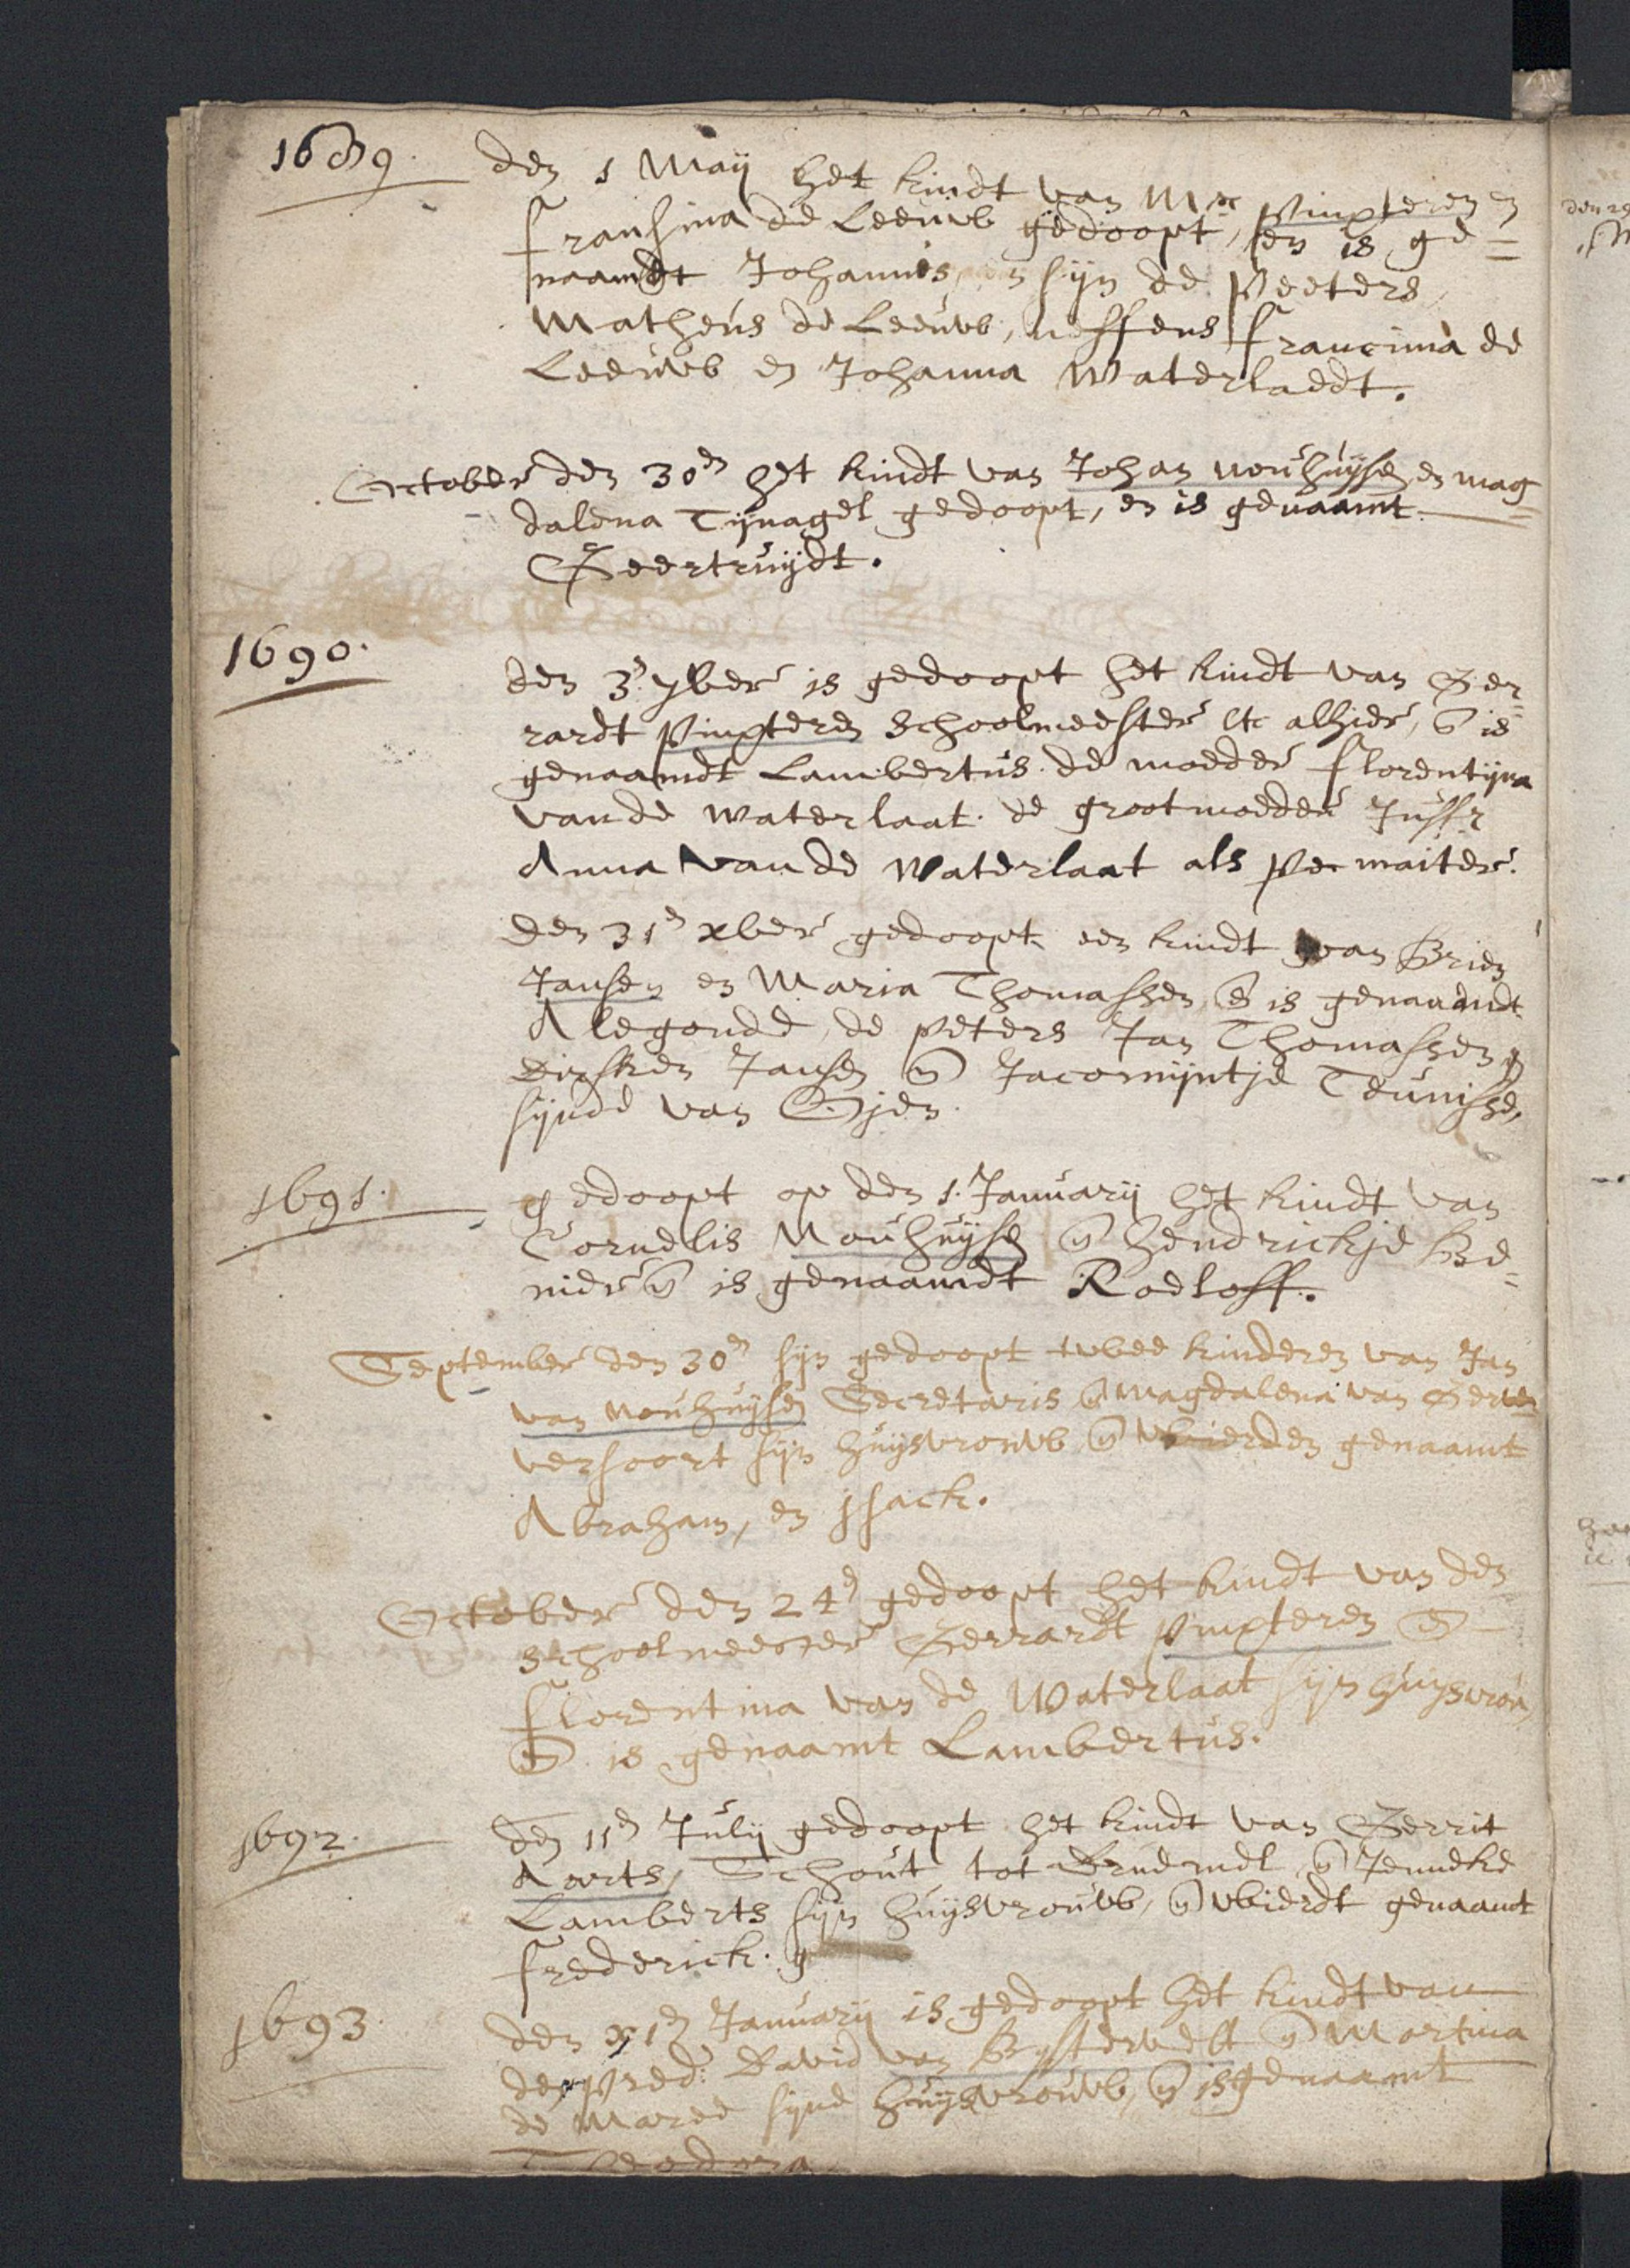 1689.
den 1 Maij het kindt van Mr Pinxteren en
Fransina de Leeuw gedoopt, en is ge=
naamdt Johannis, en sijn de Peeters,
Matheus de Leeuw, neffens Francina de
Leeuwb en Johanna Waterlaedt.
October den 30en het kindt van Johan nouhuijsen en mag=
dalena Tijnagel gedoopt, en is genaamt
Geertruijdt.
1690.
den 3en 7ber is gedoopt het kindt van Ger=
rardt Pinxteren Schoolmeester etc alhier, en is
genaamdt Lambertus. de moeder Florentijna
vande waterlaat. de grootmoeder Juffr
Anna vande Waterlaat als Pe maiter.
den 31en xber gedoopt een kindt van Brien
Jansen en Maria Thomassen, en is genaamdt
Alegonde, de peters Jan Thomassen
Dirsken Jansen en Jacomijntje Teunisse,
sijnde van Eijen.
1691.
gedoopt op den 1. Januarij het kindt van
Cornelis Nouhuijse en Hendrickje Be=
nier en is genaamdt Roeloff.
September den 30en sijn gedoopt twee kinderen van Jan
van nouhuijsen Secretaris en Magdalena van Ger
versoort sijn huijsvrouwb, en wierden genaamt
Abraham, en jsack.
October den 24en gedoopt het kindt van den
schoolmeester Gerrardt pinxteren en
Florentina van de Waterlaat sijn huijsvrou,
en is genaamt Lambertus.
1692.
den 11en Julij gedoopt het kindt van Gerrit
Aerts, Schout tot Bruemel, en Jenneke
Lamberts sijn huijsvrouwb, en wierdt genaamt
Frederick.
1693.
den 1en Januarij is gedoopt het kindt van
de pred: David van Bijstervelt en Martina
de Maree sijne huijsvrouwb, en is genaamt
Theodora